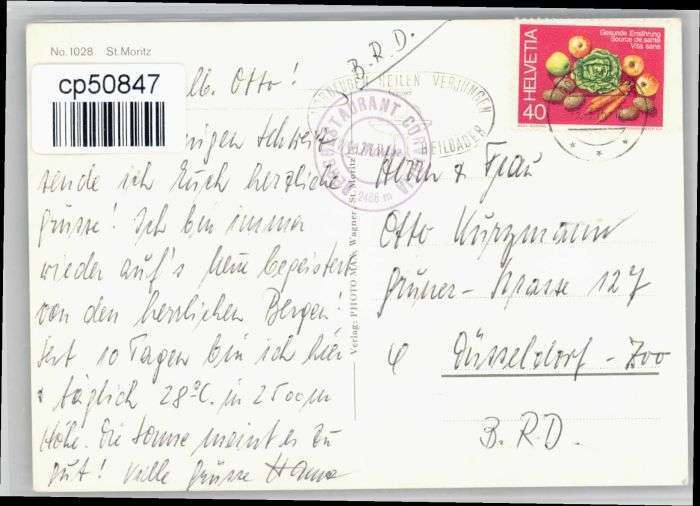 No. 1028 St. Moritz
cp50847
lb. Otto!
sonnigen Schweiz
sende ich Euch herzliche
Grüsse! Ich bin immer
wieder auf's neue begeistert
von den herrlichen Bergen!
Seit 10 Tagen bin ich hier
täglich 28°C. in 2500 m
Höhe. Die Sonne meint es zu
gut! Viele Grüsse Hanna
Verlag: PHOTO MAX Wagner, St. Moritz
B.R.D.
HEILEN VERJÜNGEN
HEILBÄDER
RESTAURANT
2486 m
HELVETIA
40
Gesunde Ernährung
Source de santé
Vita sana
Herrn & Frau
Otto Kurzmann
Gruner-Strasse 127
Düsseldorf-Zoo
B.R.D.